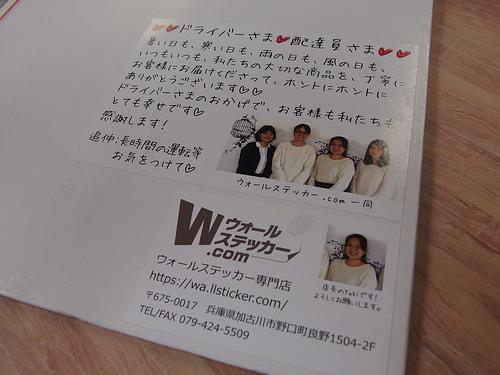 ♥♥ドライバーさま♥配達員さま♥♥
暑い日も、寒い日も、雨の日も、風の日も、
いつもいつも、私たちの大切な商品を、丁寧に
お客様にお届けくださって、ホントにホントに
ありがとうございます♡♡
ドライバーさまのおかげで、お客様も私たちも
とても幸せです♡
感謝します!
追伸:長時間の運転等
お気をつけて♡
ウォールステッカー.com一同
Wウォール
ステッカー
.com
ウォールステッカー専門店
https://wa.llsticker.com/
〒675-0017 兵庫県加古川市野口町良野1504-2F
TEL/FAX 079-424-5509
店長のYukiです!
よろしくお願いします。